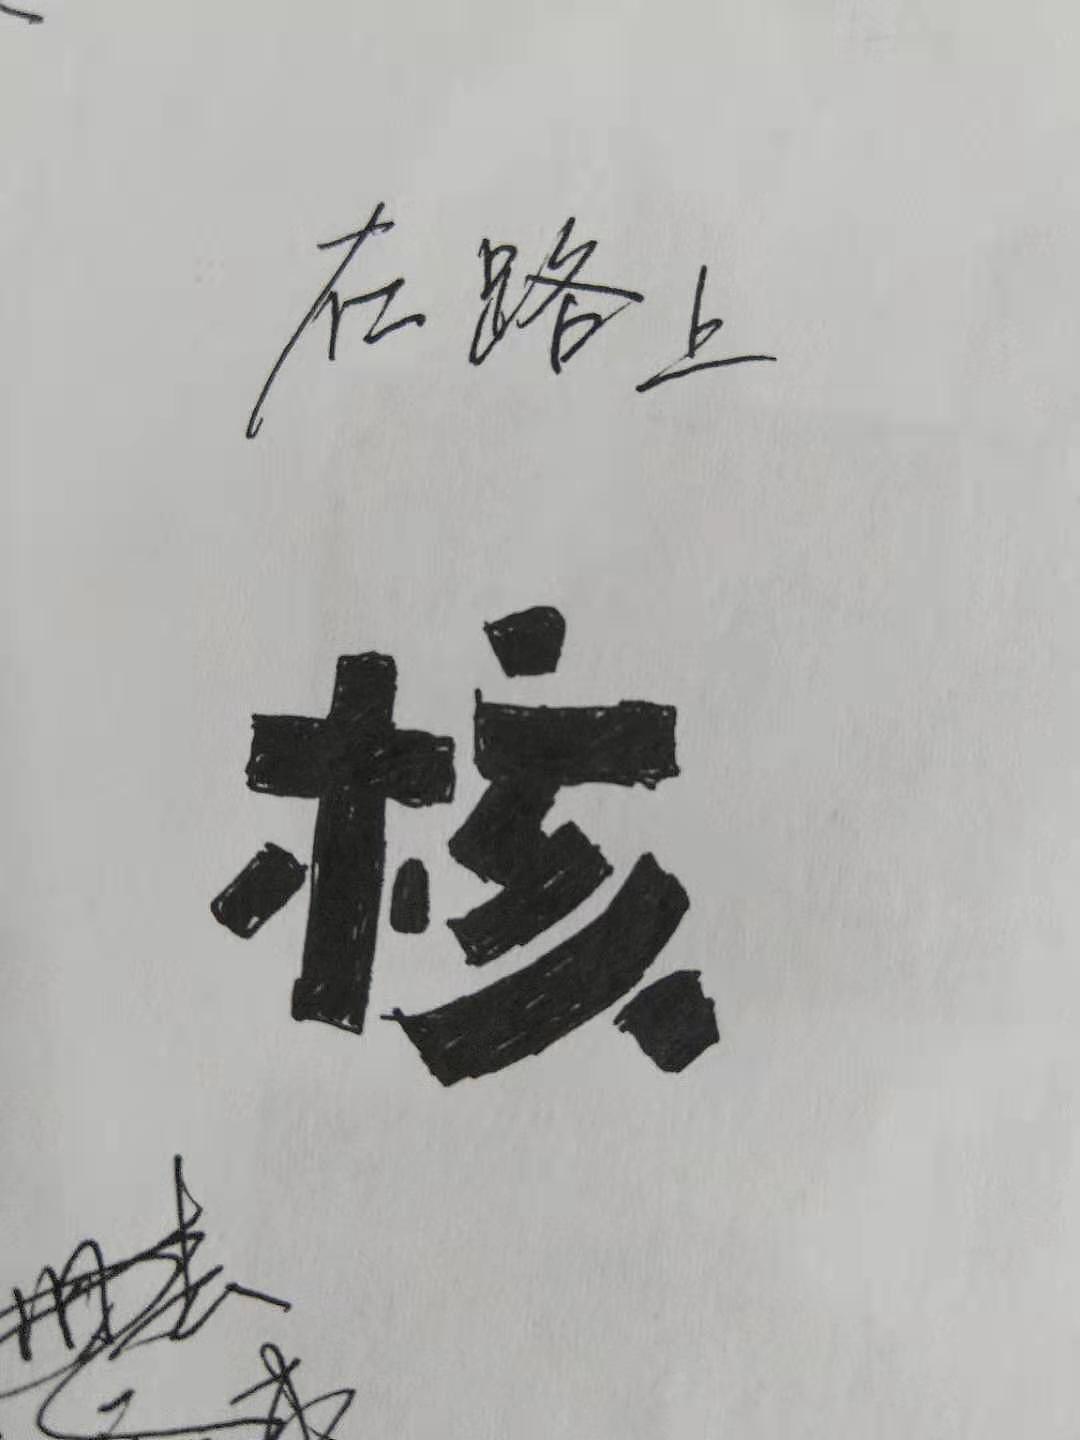 在路上
核